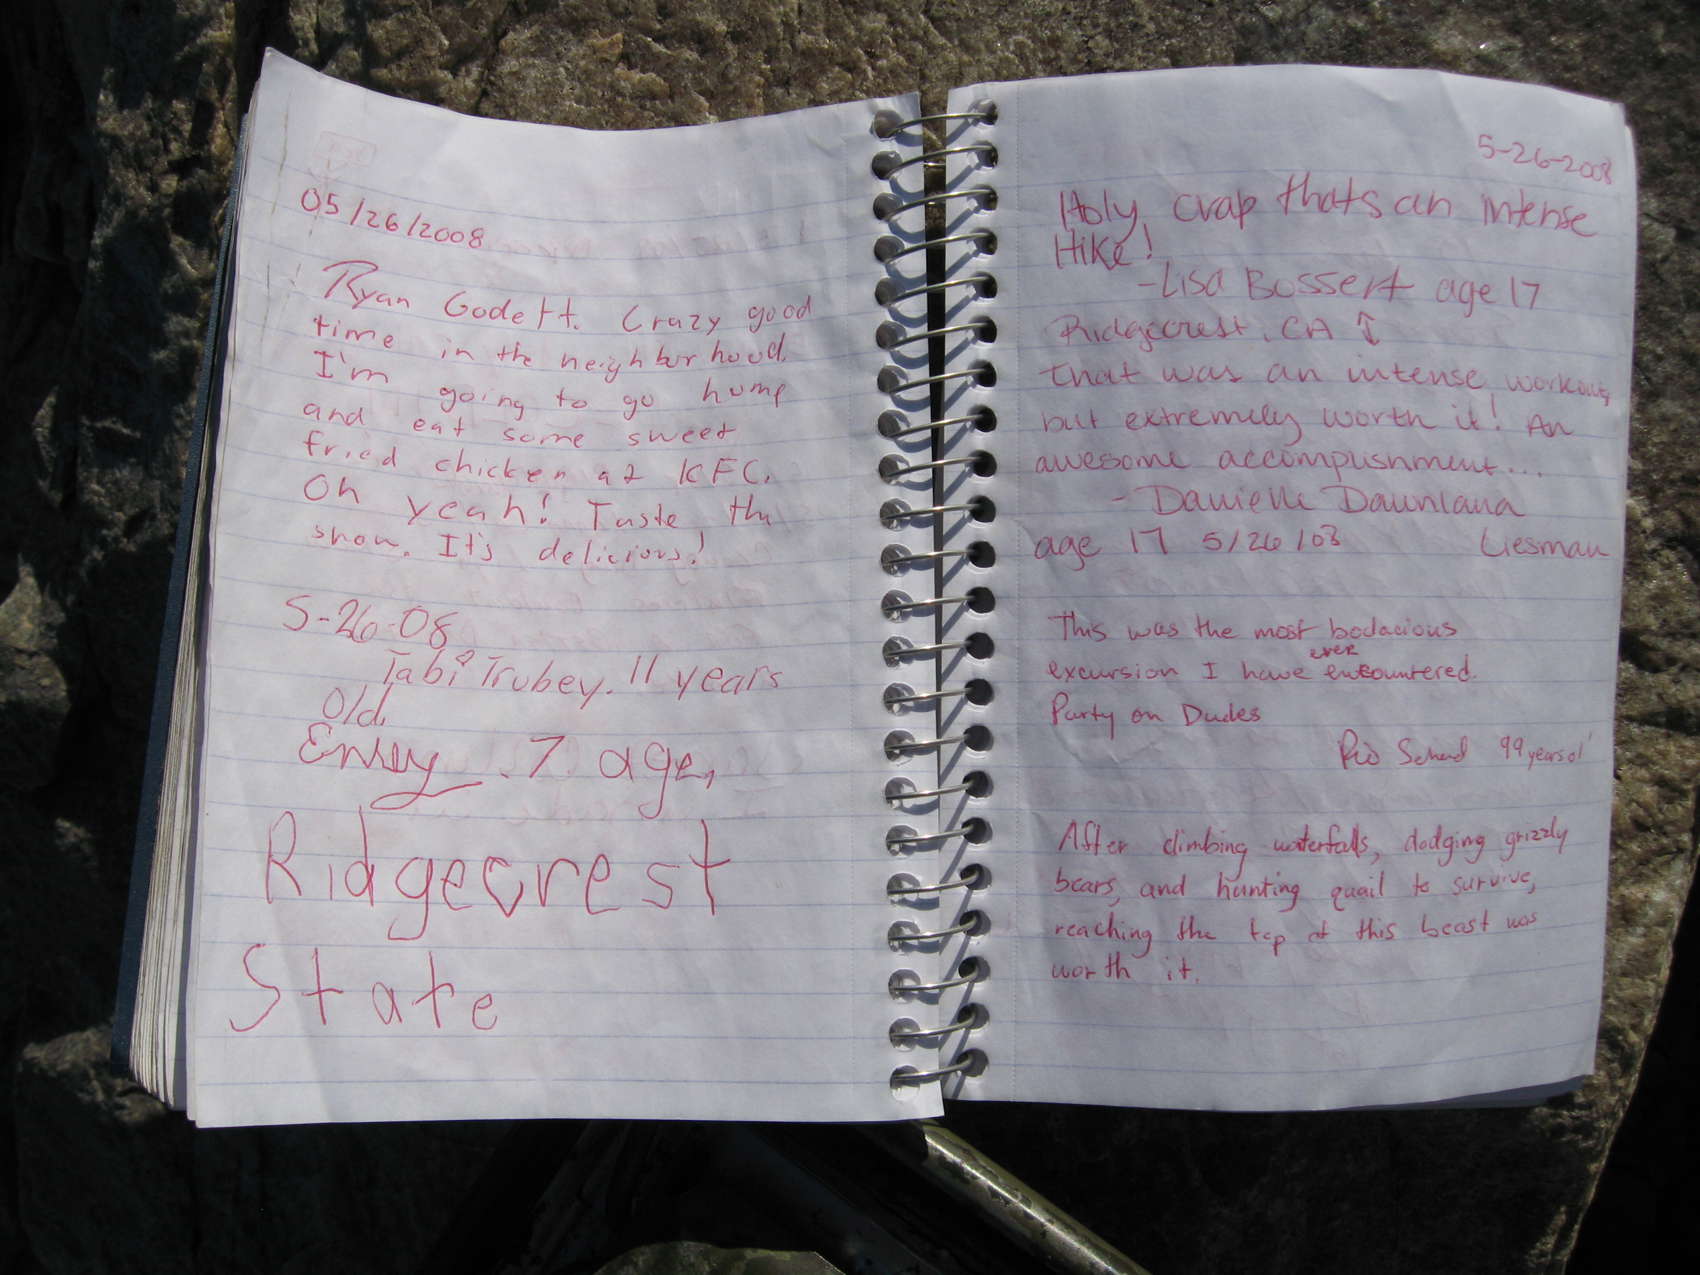 05/26/2008
Ryan Godett. Crazy good
time in the neighborhood.
I'm going to go home
and eat some sweet
fried chicken at KFC.
Oh yeah! Taste the
show. It's delicious!
5-26-08
Tabi Trubey. 11 years
Old.
7 age,
Ridgecrest
State
5-26-2008
Holy crap thats an intense
Hike!
-Lisa Bossert age 17
Ridgecrest, CA
that was an intense workout,
but extremely worth it! An
awesome accomplishment...
- Danielle
age 17 5/26/08 Liesman
This was the most bodacious
ever
excursion I have encountered.
Party on Dudes
99 years ol'
After climbing waterfalls, dodging grizzly
bears, and hunting quail to survive,
reaching the top of this beast was
worth it.